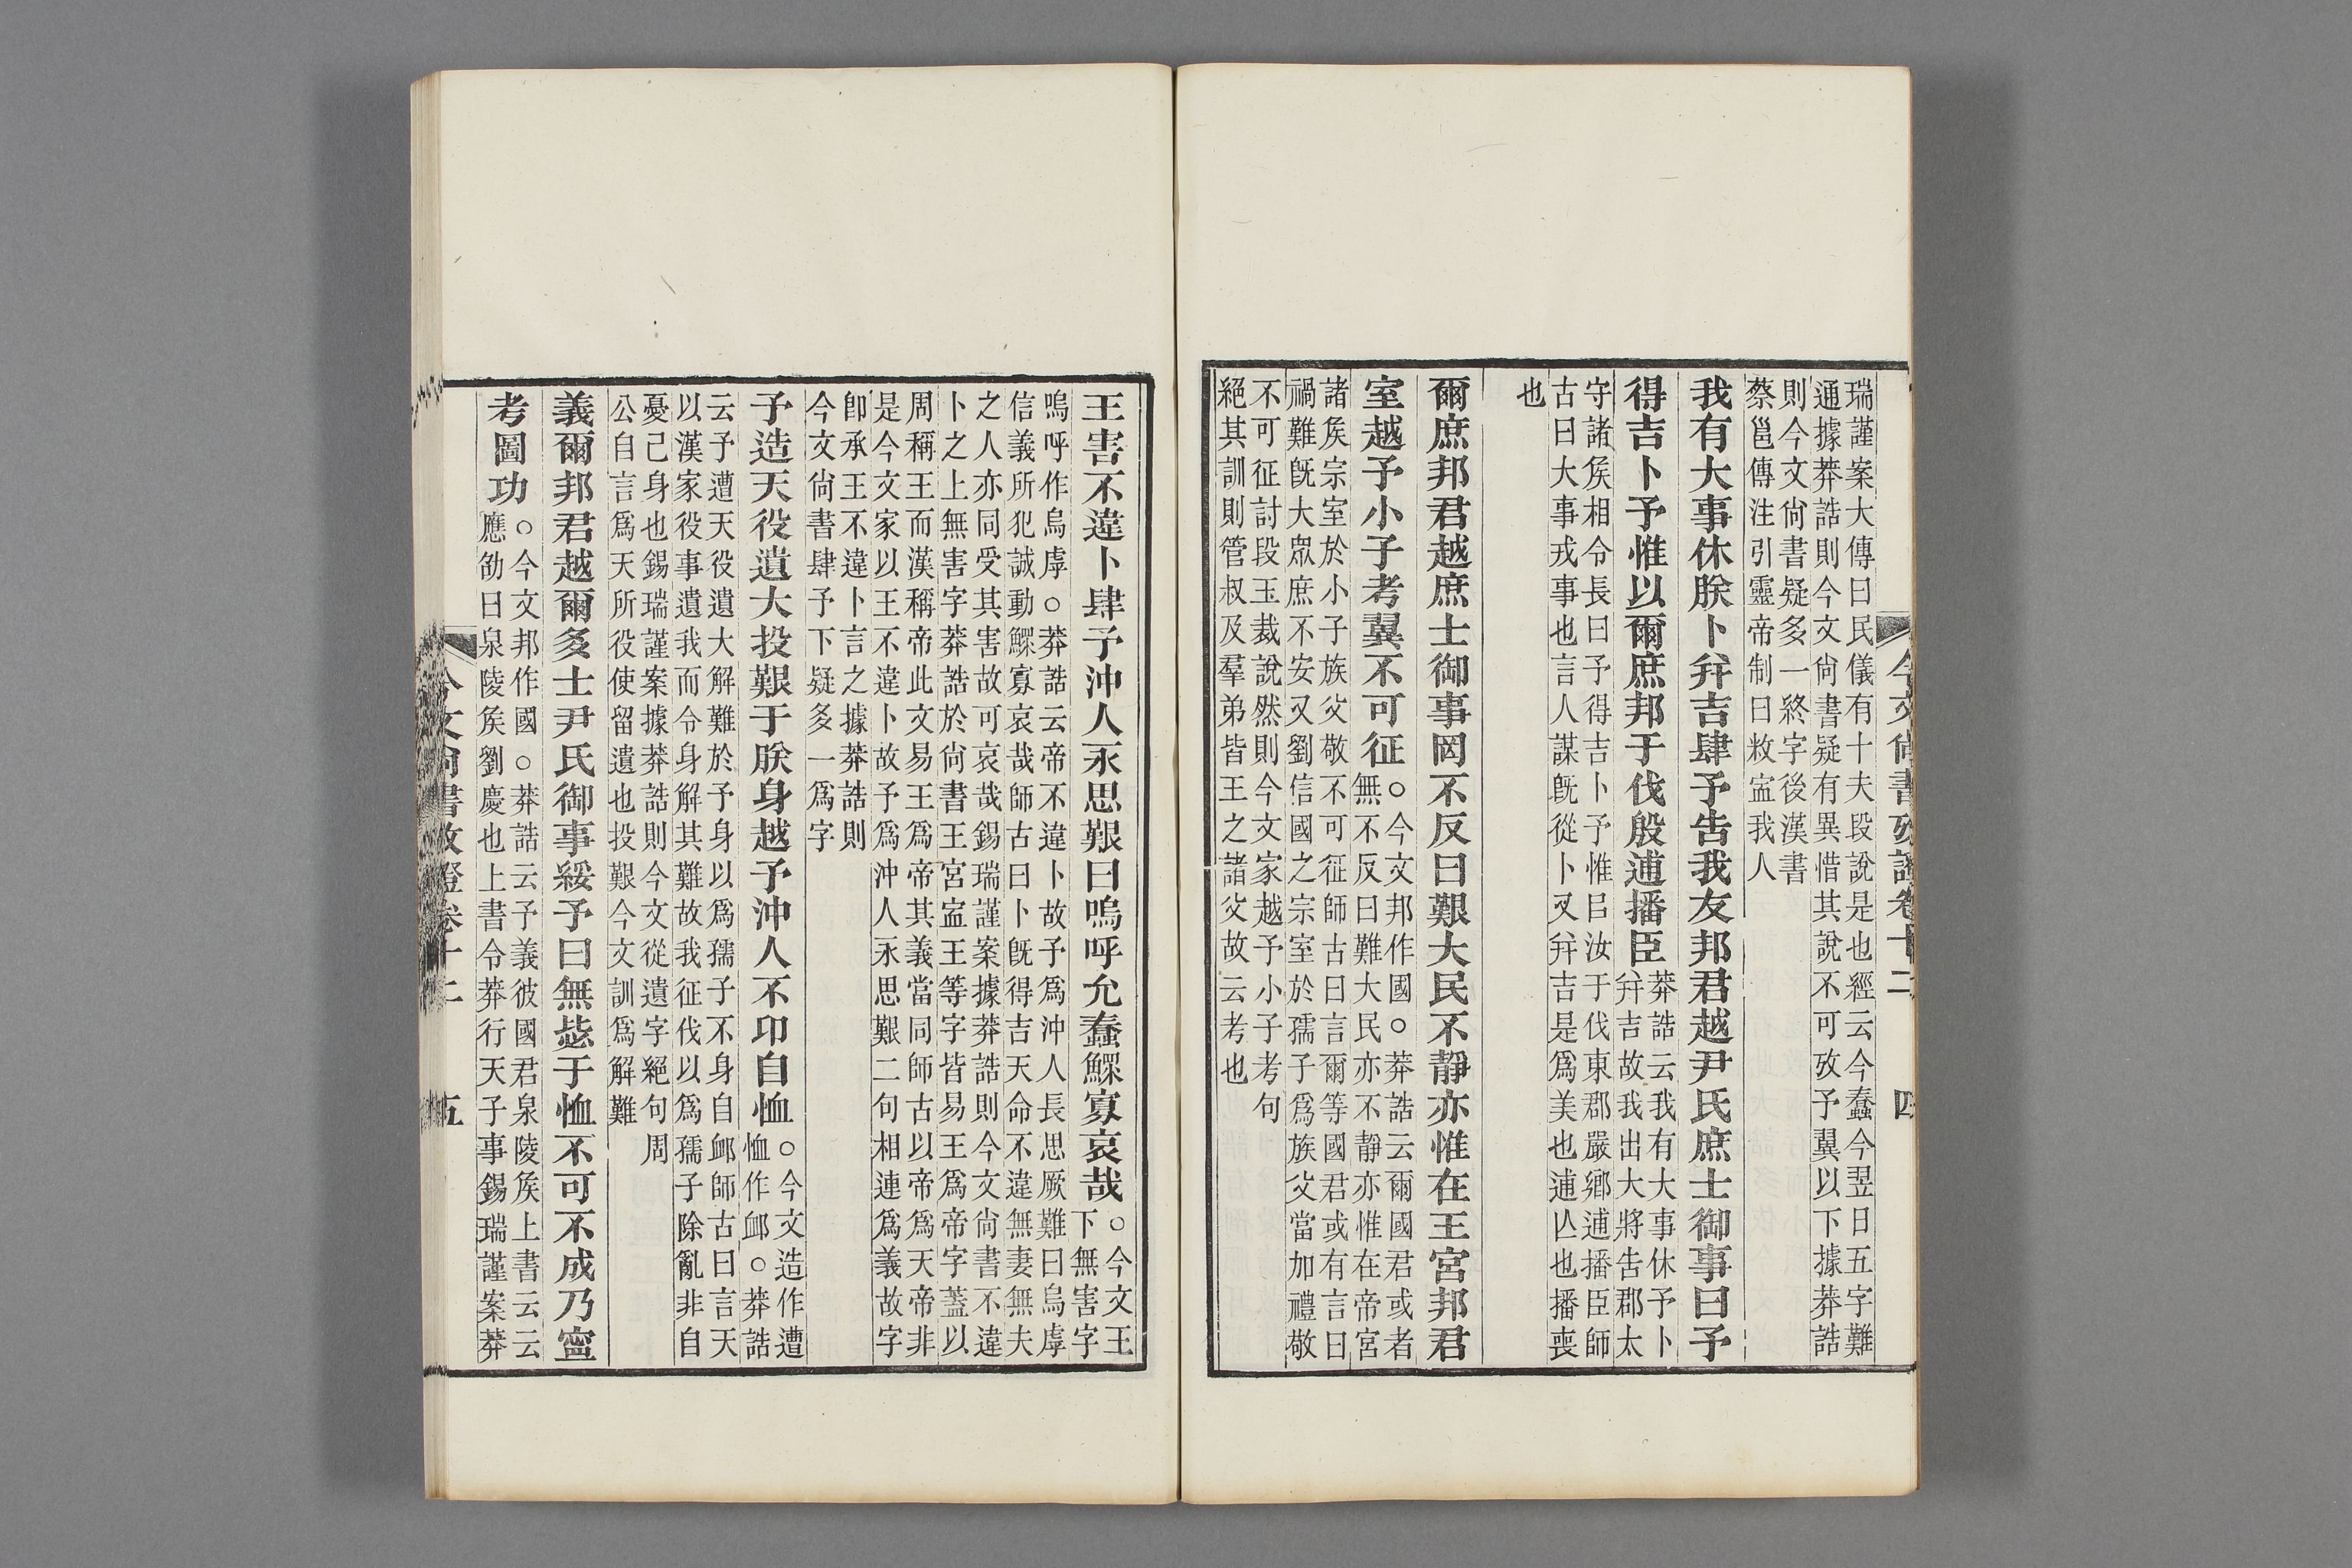 今文尚書攷證卷十二 四
瑞謹案大傳曰民儀有十夫段說是也經云今蠢今翌日五字難
通據莽誥則今文尚書疑有異惜其說不可攷予翼以下據莽誥
則今文尚書疑多一終字後漢書
蔡邕傳注引靈帝制曰敉寍我人
我有大事休朕卜幷吉肆予告我友邦君越尹氏庶士御事曰予
得吉卜予惟以爾庶邦于伐殷逋播臣
莽誥云我有大事休予卜
幷吉故我出大將告郡太
守諸矦相令長曰予得吉卜予惟㠯汝于伐東郡嚴鄉逋播臣師
古曰大事戎事也言人謀旣從卜又幷吉是爲美也逋亾也播喪
也
爾庶邦君越庶士御事罔不反曰艱大民不靜亦惟在王宮邦君
室越予小子考翼不可征
○今文邦作國○莽誥云爾國君或者
無不反曰難大民亦不靜亦惟在帝宮
諸矦宗室於小子族父敬不可征師古曰言爾等國君或有言曰
禍難旣大眾庶不安又劉信國之宗室於孺子爲族父當加禮敬
不可征討段玉裁說然則今文家越予小子考句
絕其訓則管叔及羣弟皆王之諸父故云考也
王害不違卜肆予沖人永思艱曰嗚呼允蠢鰥寡哀哉
○今文王
下無害字
嗚呼作烏虖○莽誥云帝不違卜故予爲沖人長思厥難曰烏虖
信義所犯誠動鰥寡哀哉師古曰卜旣得吉天命不違無妻無夫
之人亦同受其害故可哀哉錫瑞謹案據莽誥則今文尚書不違
卜之上無害字莽誥於尚書王宮寍王等字皆易王爲帝字蓋以
周稱王而漢稱帝此文易王爲帝其義當同師古以帝爲天帝非
是今文家以王不違卜故予爲沖人永思艱二句相連爲義故字
卽承王不違卜言之據莽誥則
今文尚書肆予下疑多一爲字
予造天役遺大投艱于朕身越予沖人不卬自恤
○今文造作遭
恤作卹○莽誥
云予遭天役遺大解難於予身以爲孺子不身自卹師古曰言天
以漢家役事遺我而令身解其難故我征伐以爲孺子除亂非自
憂己身也錫瑞謹案據莽誥則今文從遺字絕句周
公自言爲天所役使留遺也投艱今文訓爲解難
義爾邦君越爾多士尹氏御事綏予曰無毖于恤不可不成乃寍
考圖功
○今文邦作國○莽誥云予義彼國君泉陵矦上書云云
應劭曰泉陵矦劉慶也上書令莽行天子事錫瑞謹案莽
今文尚書攷證卷十二 五